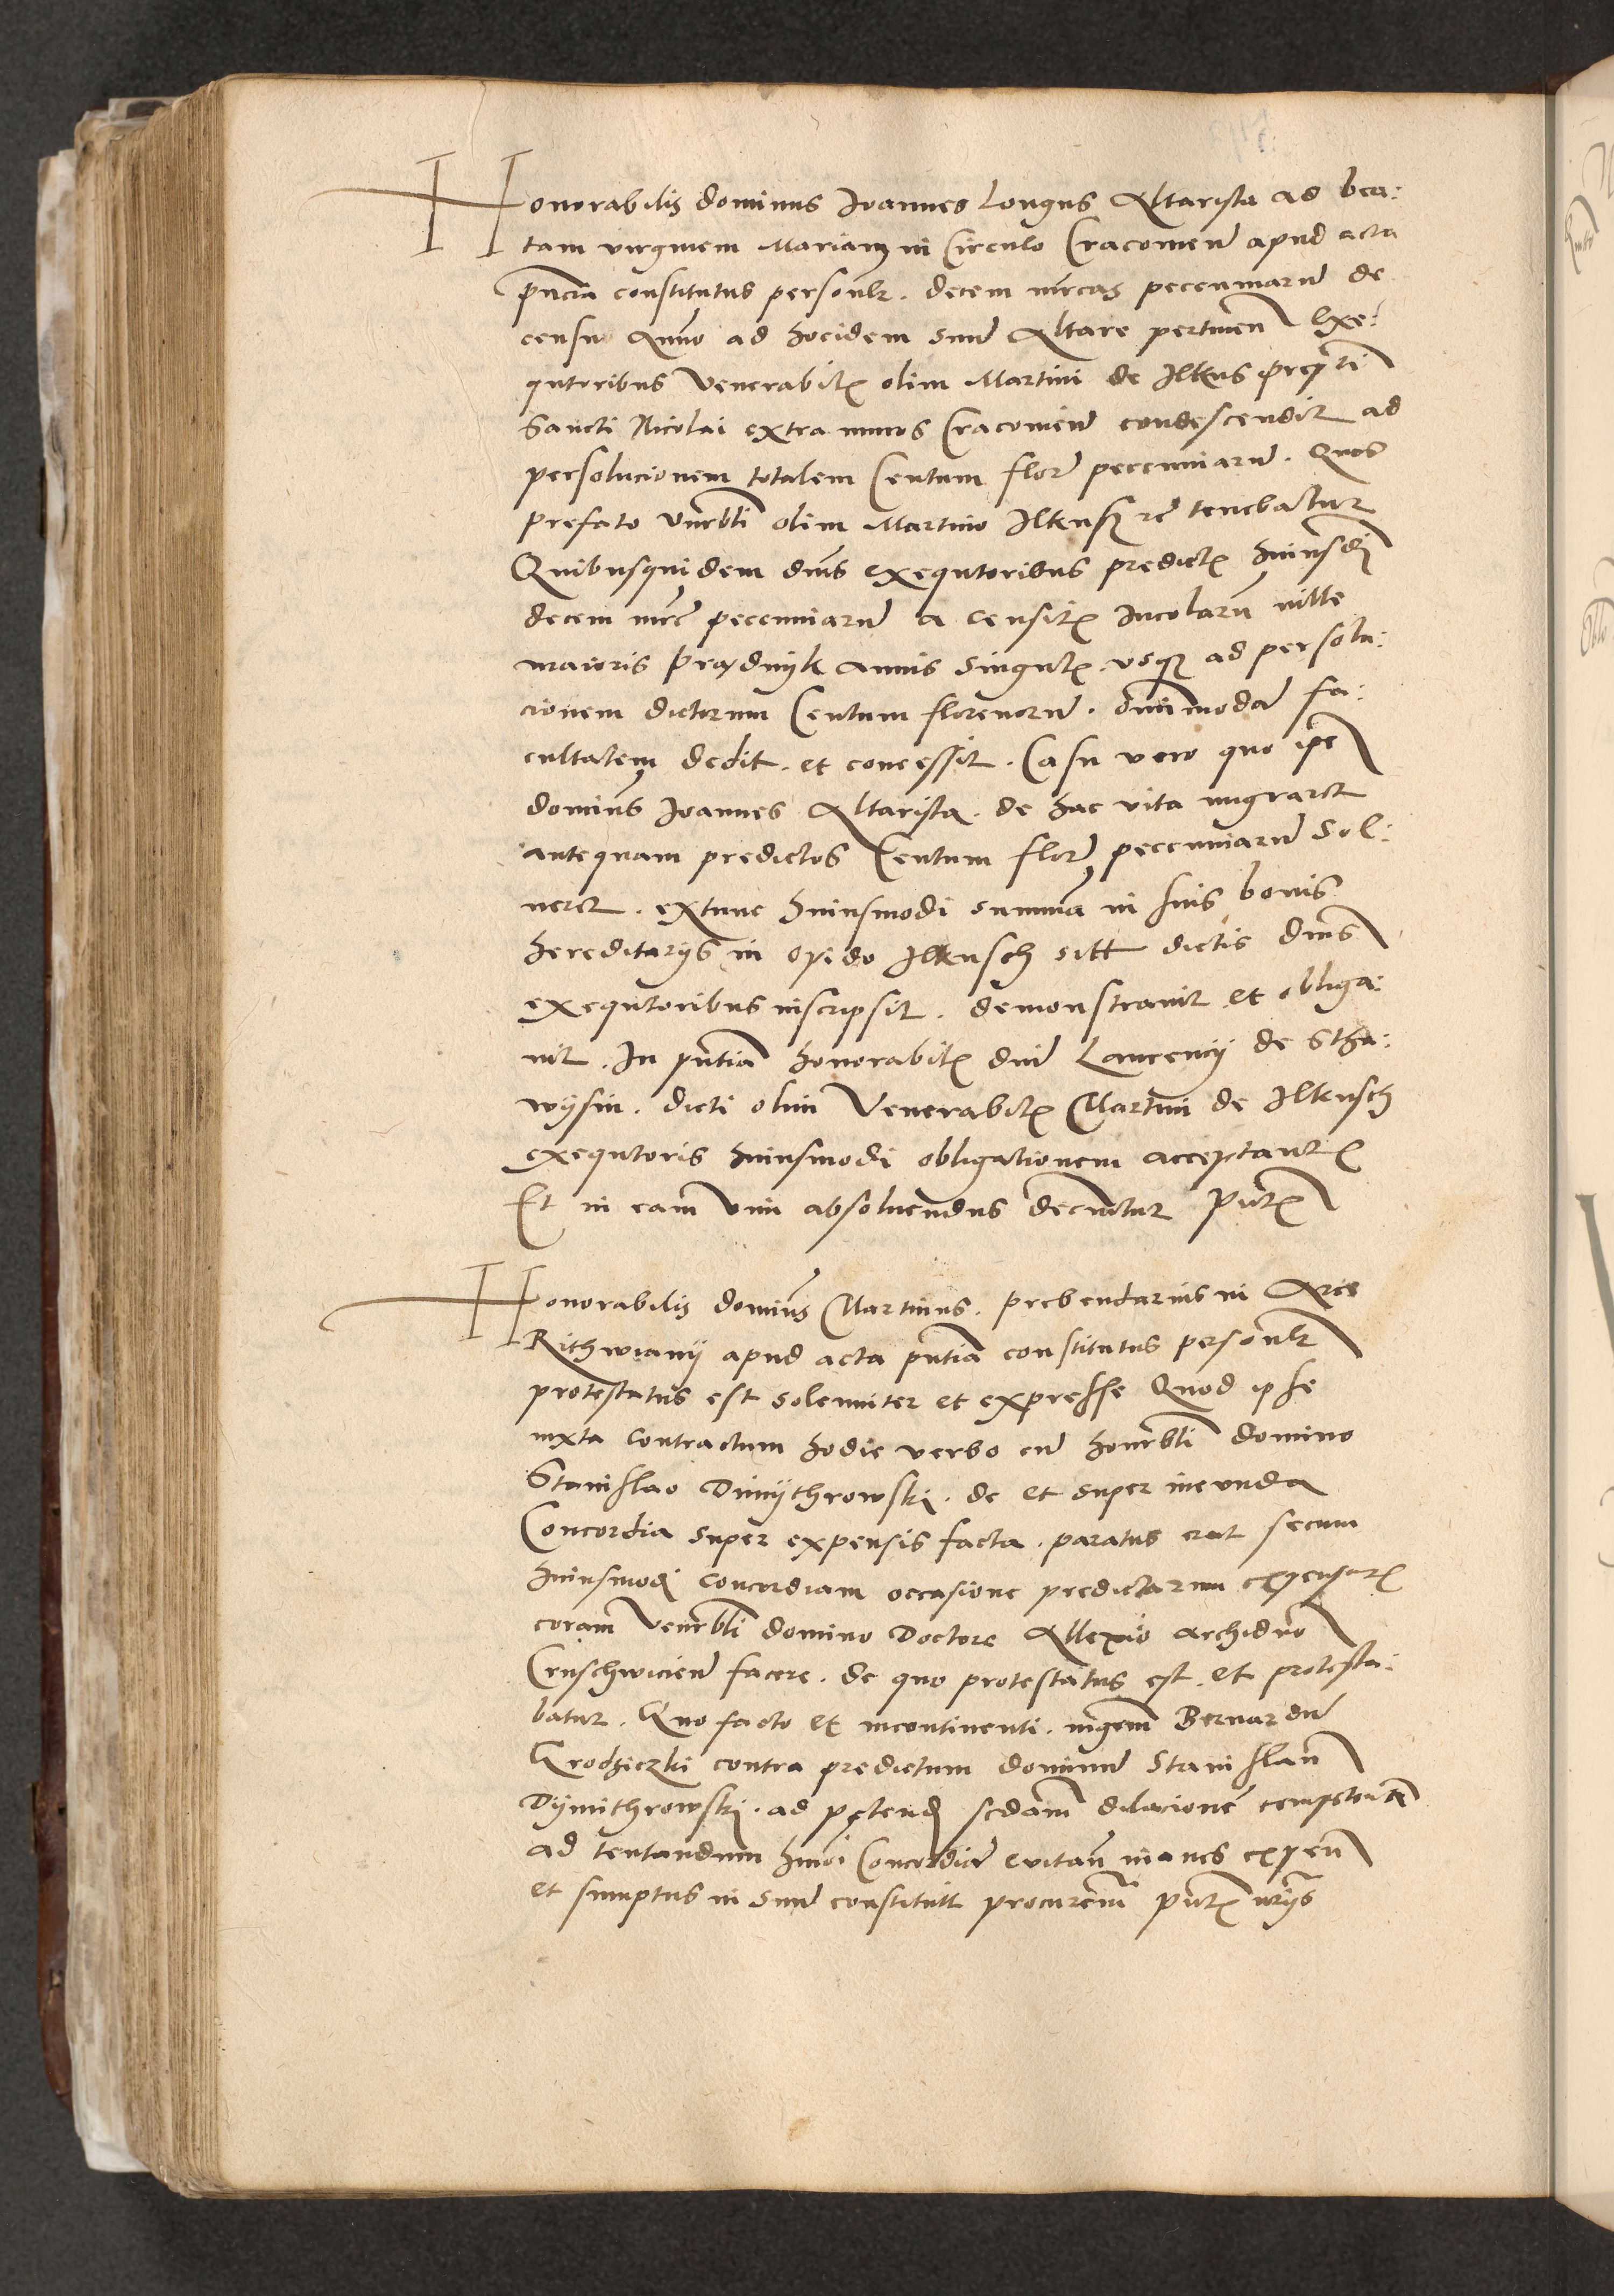 Honorabilis dominus Joannes Longus Altarista ad bea:
tam virginem Mariam in Circulo Cracovien apud acta
pñcia constitutus personlr. decem mrcas pecuniarũ de
censu Annuo ad hocidem suũ Altare pertinen Exe:
qutoribus Venerabilꝭ olim Martini de Ilkus prepti
Sancti Nicolai extra muros Cracovien condescendit ad
persolucionem totalem Centum flor pecuniarũ. Quos
prefato Vnrbli olim Martino Ilkusz tenebatur
Quibusquidem dnis exequtoribus predictꝭ huiusdi
decem mrc pecuniarũ a censitꝭ Incolarũ ville
maioris Prądnyk annis singulꝭ usqꝫ ad persolu:
cionem dictorum Centum florenorũ. omnimodã fa:
cultatem dedit. et concessit. Casu vero quo ipe
dominus Joannes Altarista. de hac vita migraret
antequam predictos Centum flor pecuniarũ sol:
veret. extunc huiusmodi summã in suis bonis
hereditarijs in opido Ilkusch sitt dictis dnis
exequtoribus inscripsit. demonstravit et obliga:
vit. In pñtia honorabilꝭ dni Laurencij de Stha:
wyssin. dicti olim Venerabilꝭ Martini de Ilkusch
exequtoris huiusmodi obligationem acceptantꝭ
Et in eam vim absolvendus decernitur Pñtꝭ
Honorabilis dominus Martinus. prebendarius in Arce
Rithwiany apud acta pñtia constitutus personlr
protestatus est solenniter et expresse Quod ipse
iuxta contractum hodie verbo cũ honrbli domino
Stanislao Dmythrowski. de et super ineunda
Concordia super expensis facta. paratus erat secum
huiusmodi concordiam occasione predictarum expensarꝭ
coram Venrbli domino Doctore Allexio archidno
Cruschwicien facere. de quo protestatus est. et protesta:
batur. Quo facto et incontinenti. Bernardũ
Grodziczki contra predictum dominũ Stanislaũ
Dymithrowski. ad petend dilacionẽ competentẽ
ad tentandum hmoi Concordiã evitan inanes expen
et sumptus in suũ constituit procurem Pñtꝭ